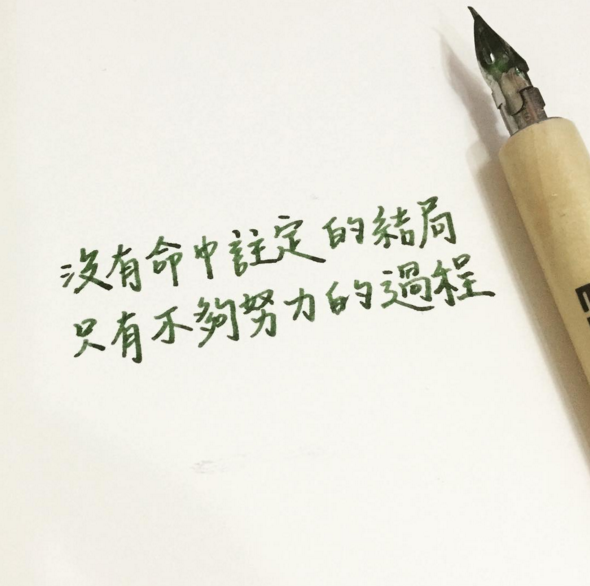 沒有命中註定的結局
只有不夠努力的過程